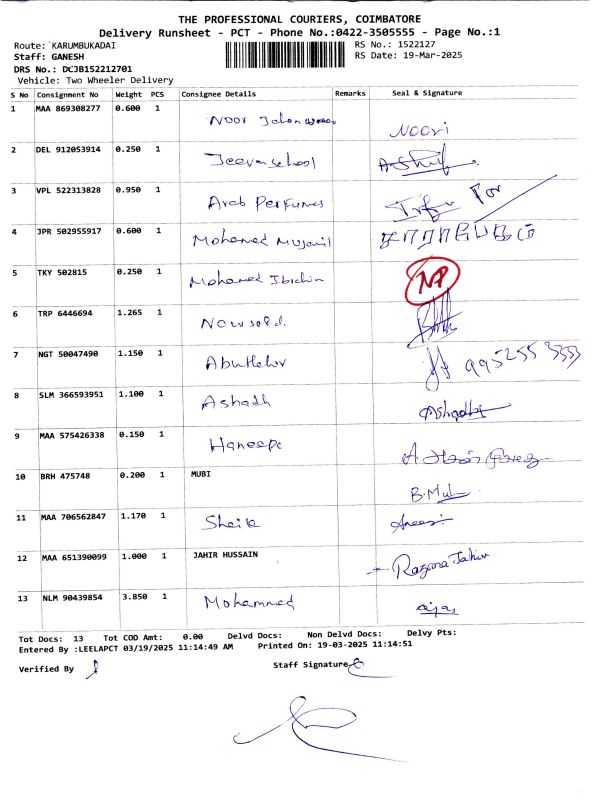 THE PROFESSIONAL COURIERS, COIMBATORE
Delivery Runsheet - PCT - Phone No.:0422-3505555 - Page No.:1
Route: KARUMBUKADAI RS No.: 1522127
Staff: GANESH RS Date: 19-Mar-2025
DRS No.: DCJB152212701
Vehicle: Two Wheeler Delivery
S No Consignment No Weight PCS Consignee Details Remarks Seal & Signature
1 MAA 869308277 0.600 1 Noor Noori
2 DEL 912053914 0.250 1
3 VPL 522313828 0.950 1 Arab Perfumes For
4 JPR 502955917 0.600 1 Mohamed
5 TKY 502815 0.250 1 Mohamed NP
6 TRP 6446694 1.265 1
7 NGT 50047490 1.150 1
8 SLM 366593951 1.100 1 Ashadh
9 MAA 575426338 0.150 1
10 BRH 475748 0.200 1 MUBI
11 MAA 706562847 1.170 1 Sheik
12 MAA 651390099 1.000 1 JAHIR HUSSAIN
13 NLM 90439854 3.850 1 Mohammed
Tot Docs: 13 Tot COD Amt: 0.00 Delvd Docs: Non Delvd Docs: Delvy Pts:
Entered By :LEELAPCT 03/19/2025 11:14:49 AM Printed On: 19-03-2025 11:14:51
Verified By Staff Signature